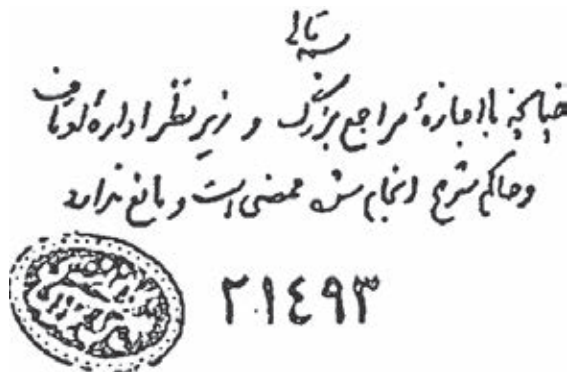 بسمه تعالی
چنانچه با اجازهٔ مراجع بزرگ و زیر نظر ادارهٔ اوقاف
و حاکم شرع انجام شده ممضی است و مانع ندارد
۲۱٤۹۳